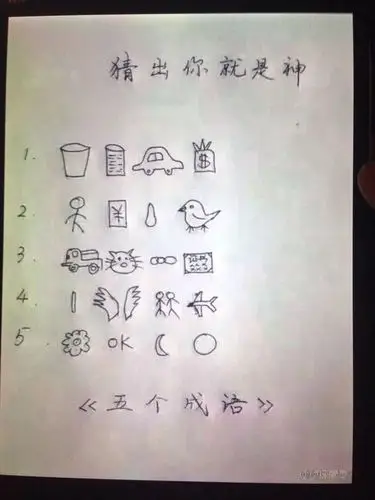 猜出你就是神
1. $
2 ¥
3.
4.
5. OK
《五个成语》